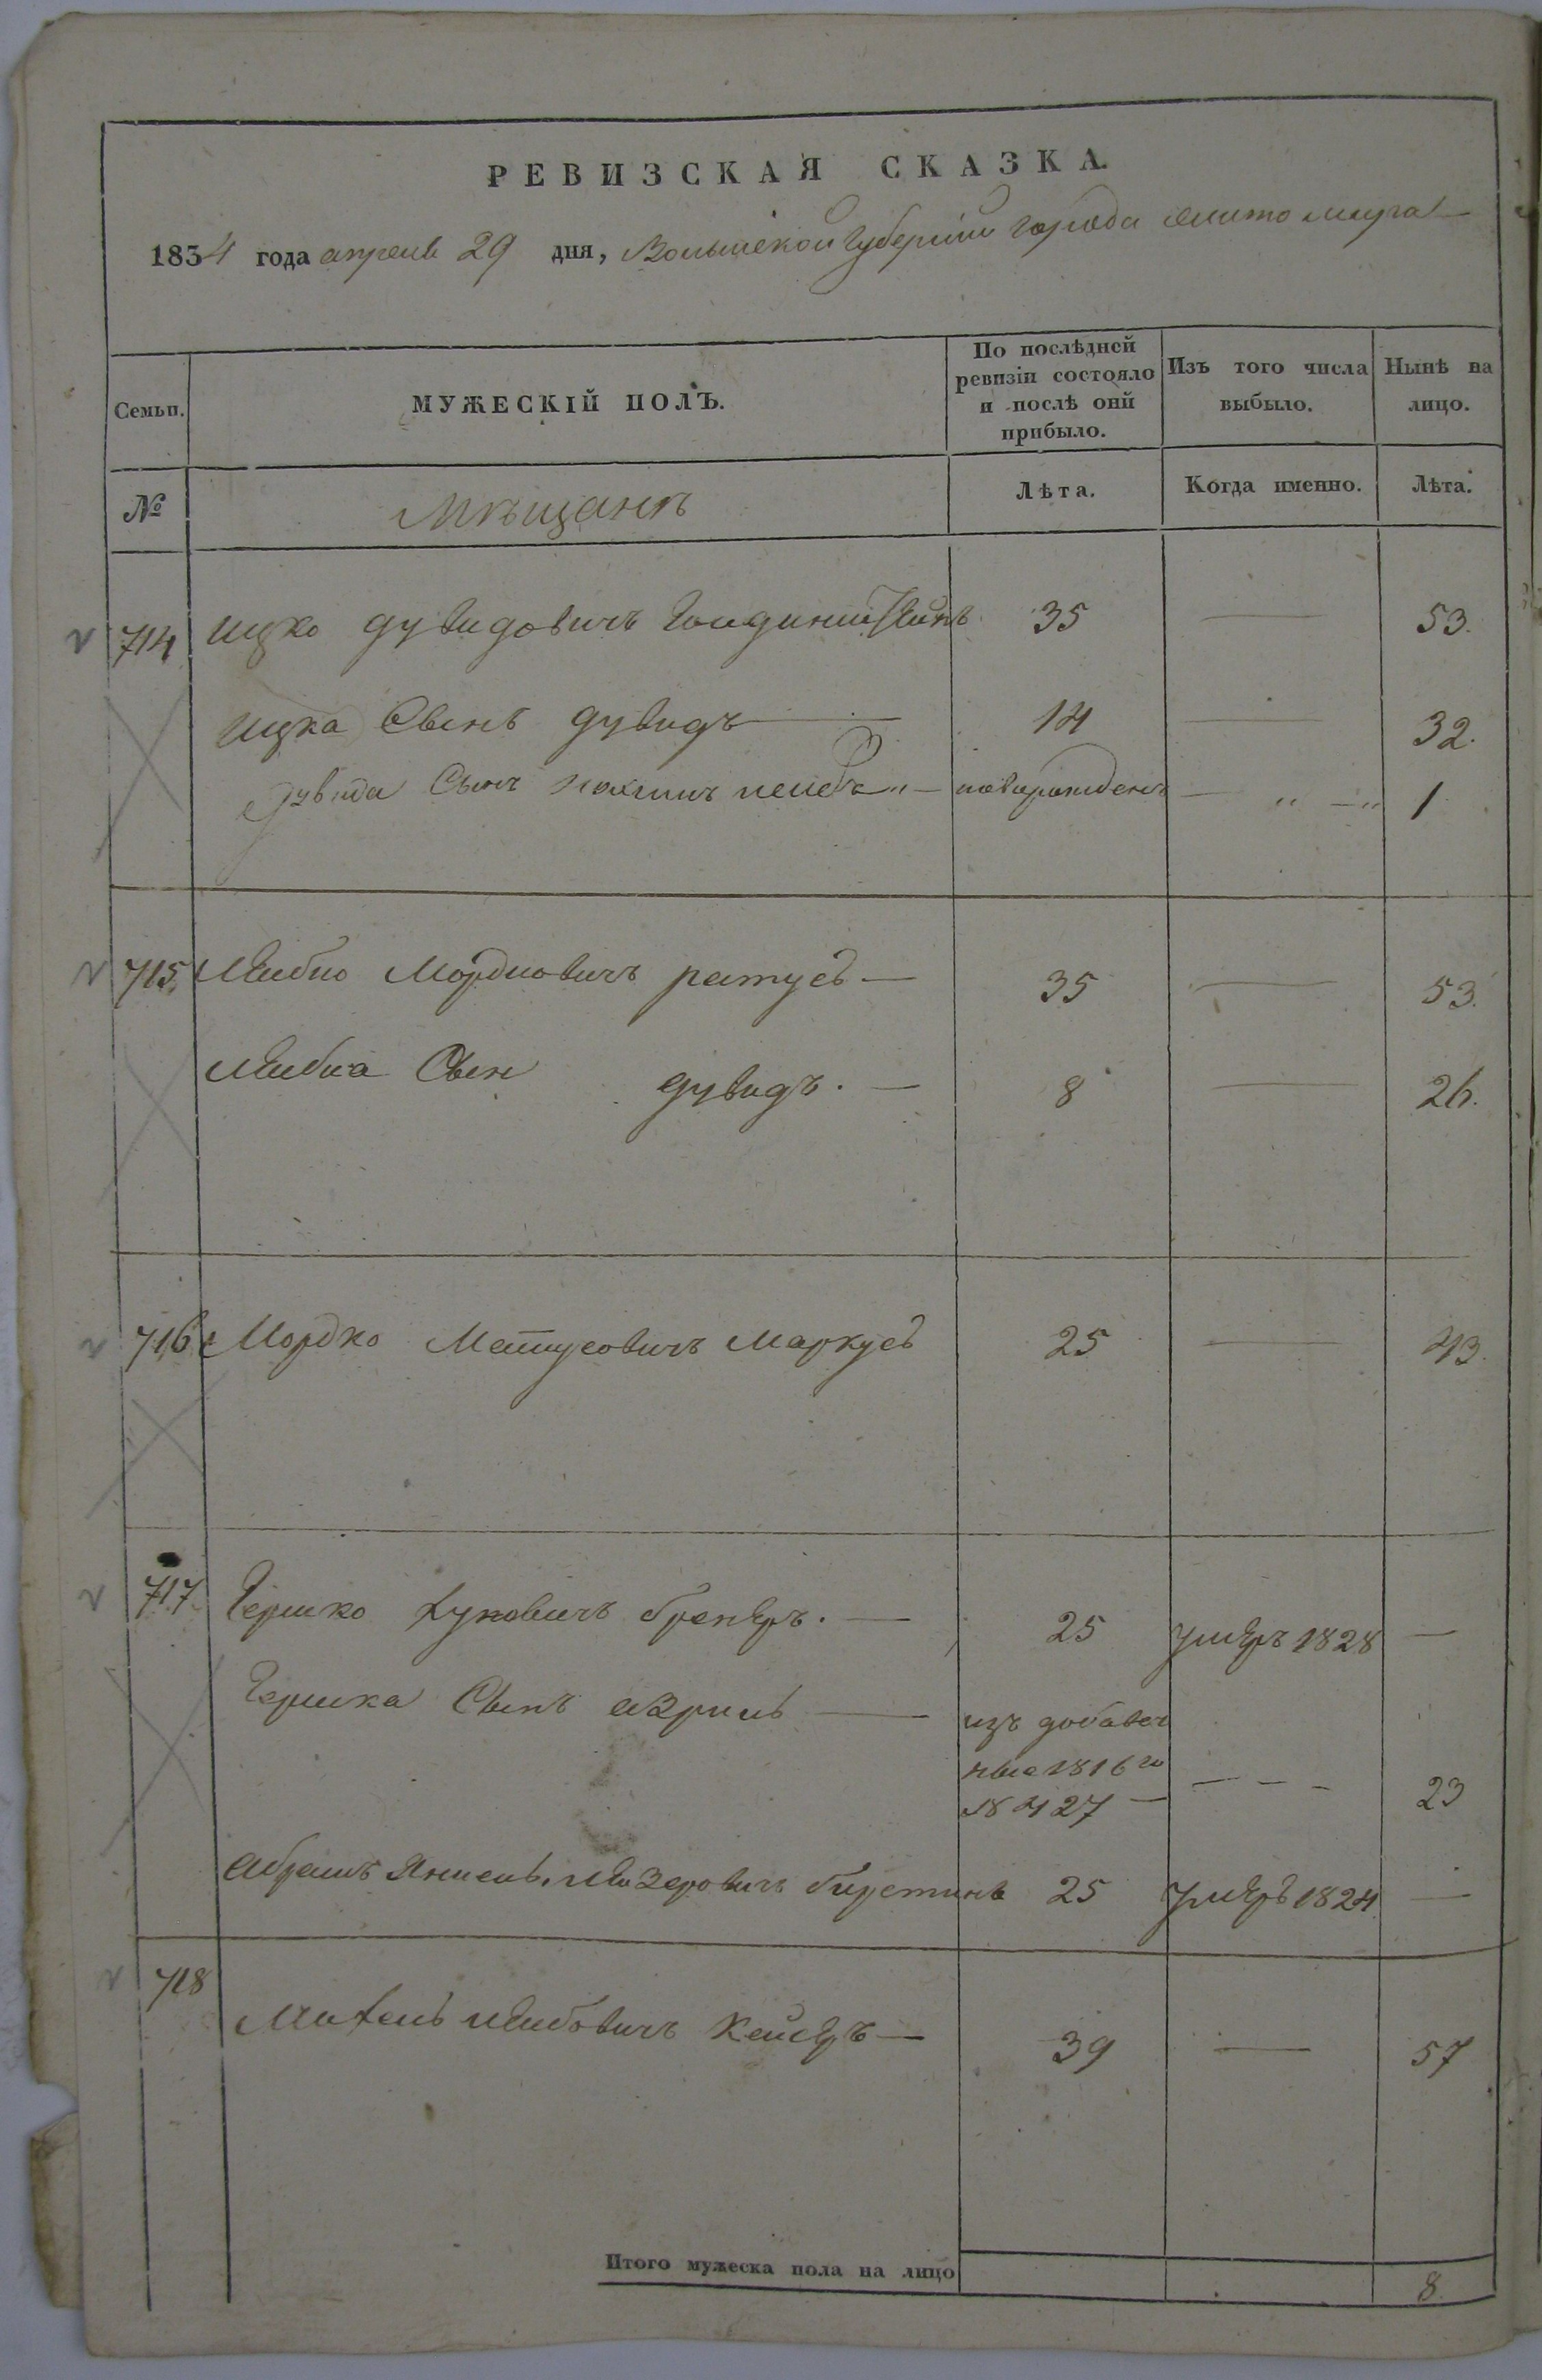 РЕВИЗСКАЯ СКАЗКА.
1834 года апреля 29 дня, Волынской губернии города Житомира
Семьи.
МУЖЕСКІЙ ПОЛЪ.
По послѣдней ревизіи состояло и послѣ оній прибыло.
Изъ того числа выбыло.
Нынѣ на лицо.
№
Мѣщанъ
Лѣта.
Когда именно.
Лѣта.
714 ицко дувидовичъ 35 — 53.
ицка Сынъ дувидъ — 14 — 32.
Дувида Сынъ новорожденъ — " — " 1
715 Лейбко Мордковичъ ратусъ — 35 — 53.
Лейбка Сын дувидъ. — 8 — 26.
716 Мордко Матусовичъ Маркусъ 25 — 43.
717 Гершко бренеръ. — 25 умеръ 1828 —
Гершка Сынъ азриль —
изъ добавоч
ные 1816го
18 427 — - - - 23
Абрамъ Лейзеровичъ 25 умеръ 1824 —
718
Михель Лейбовичъ Кейсеръ — 39 — 57
Итого мужеска пола на лицо 8.